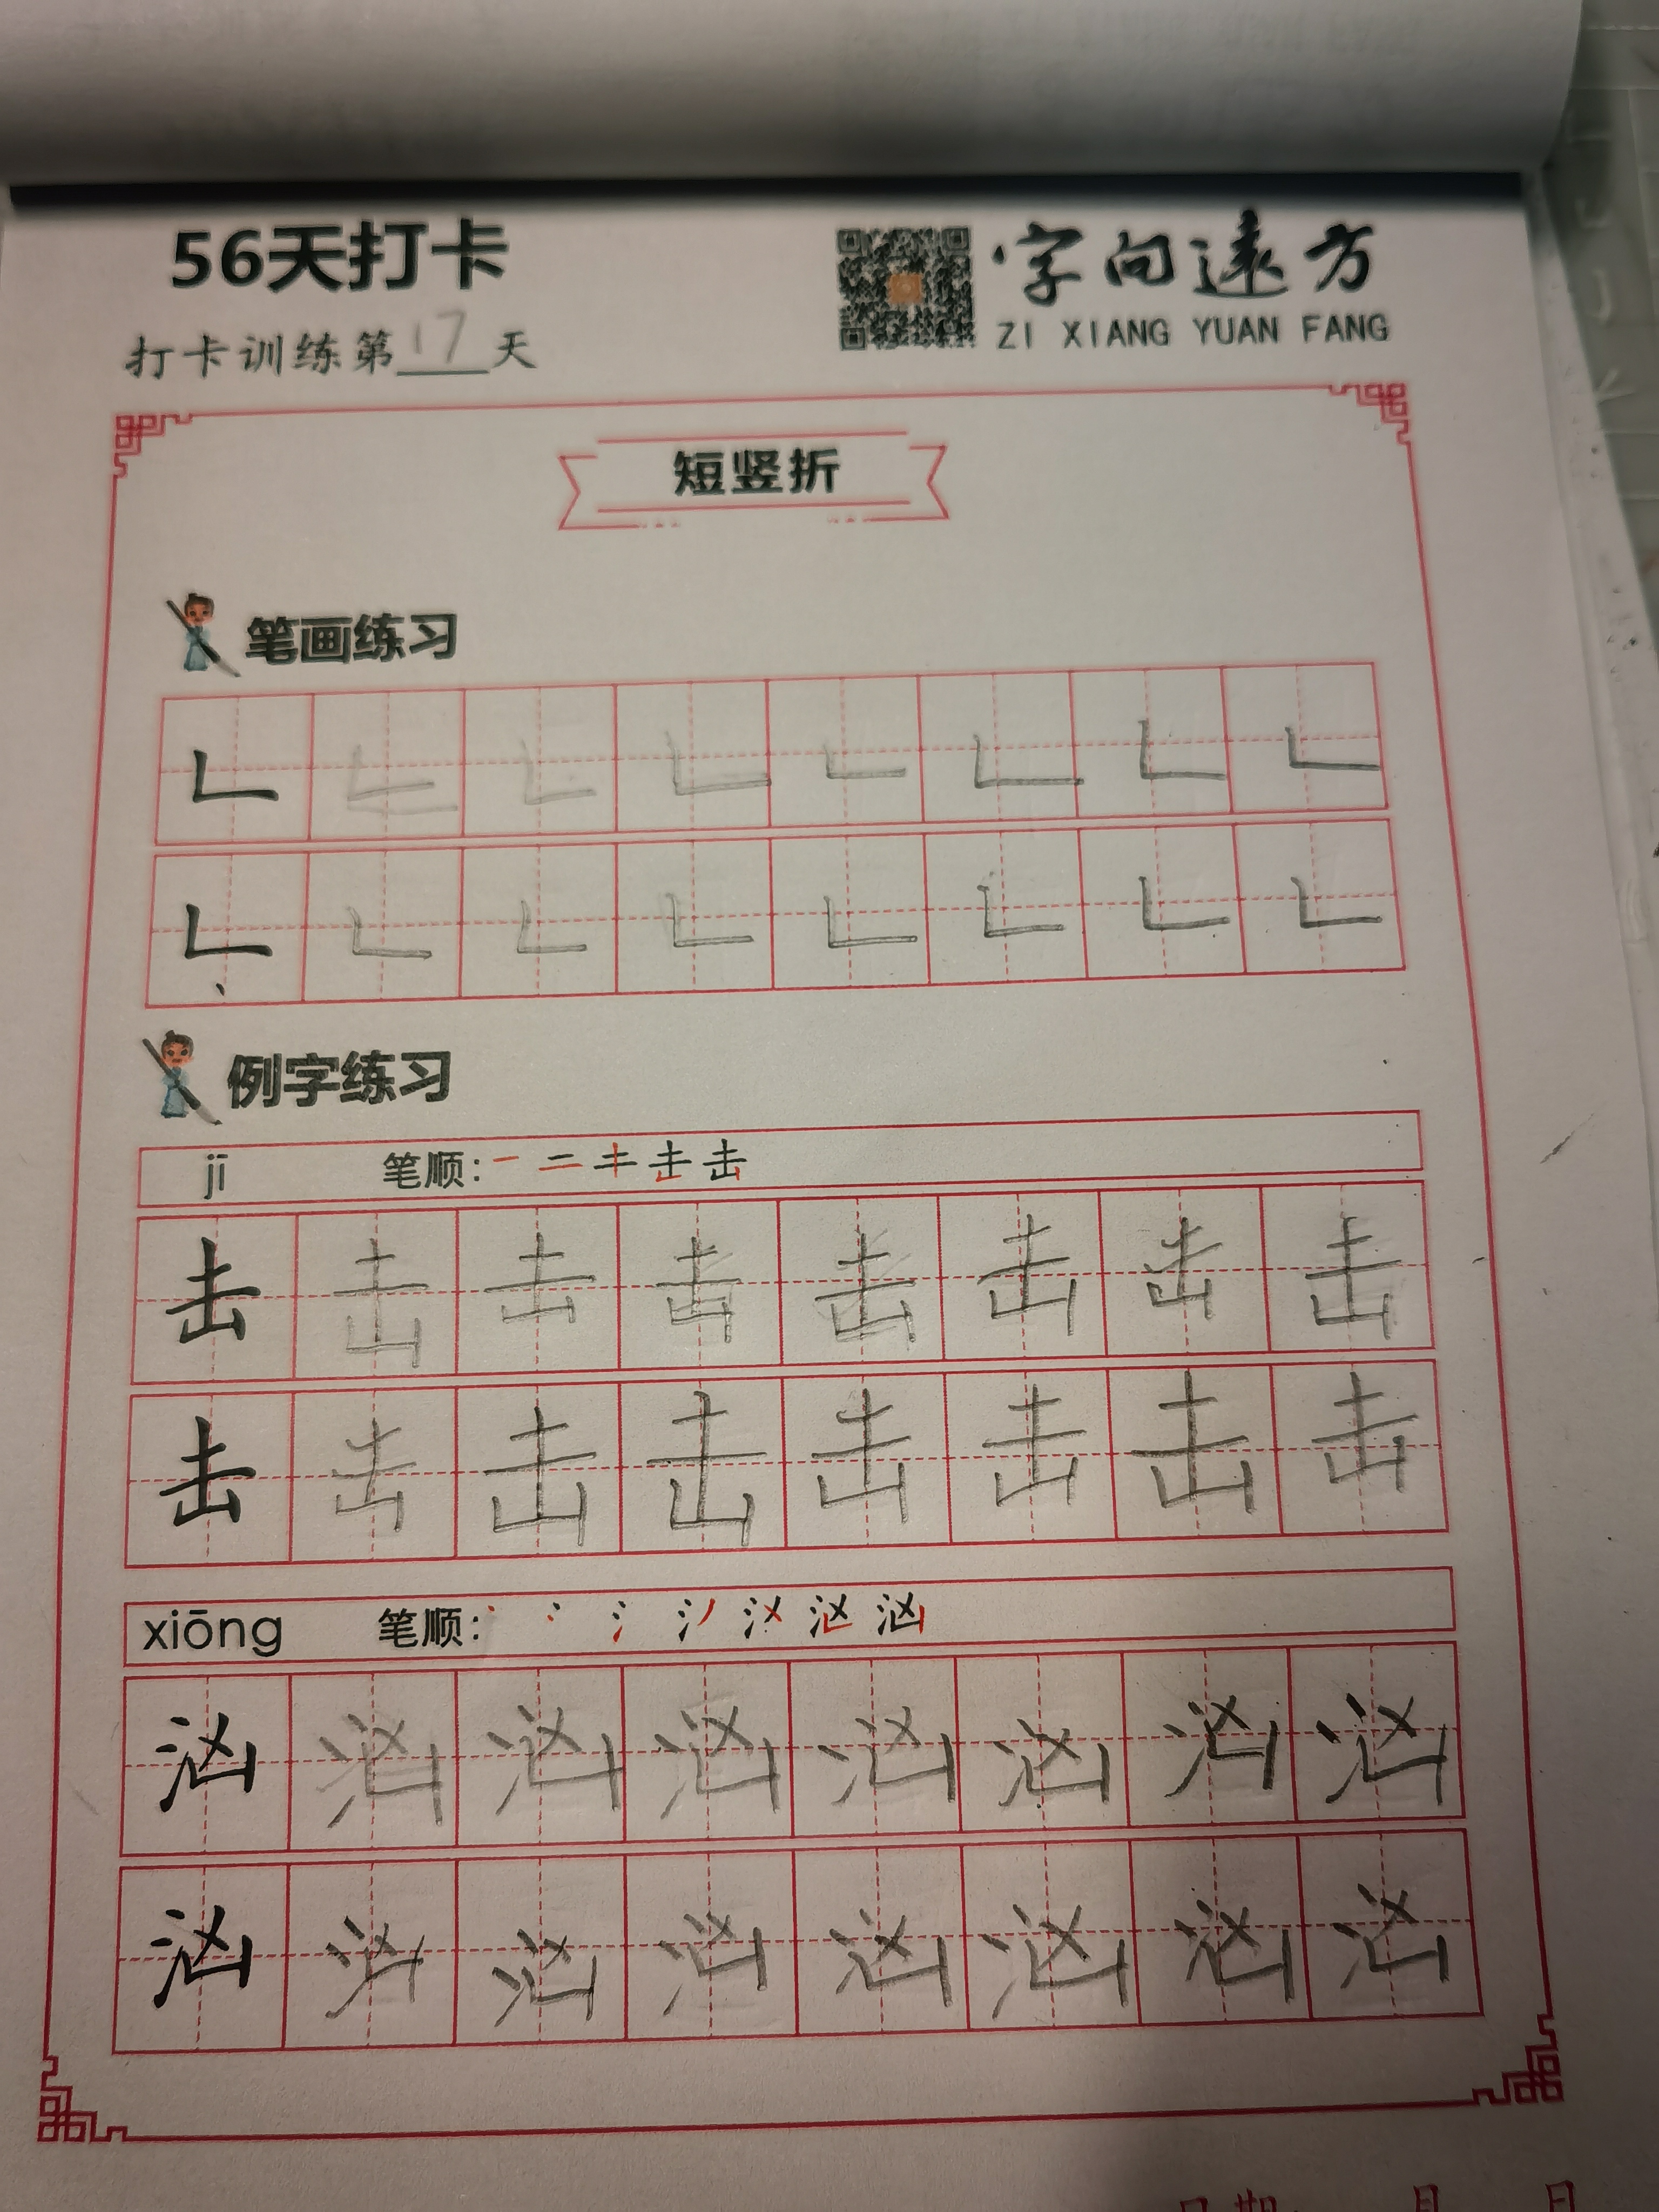 56天打卡
字向远方
ZI XIANG YUAN FANG
打卡训练第17天
短竖折
笔画练习
例字练习
jī 笔顺:
击 击 击 击 击 击 击 击
击 击 击 击 击 击 击 击
xiōng 笔顺:
汹 汹 汹 汹 汹 汹 汹 汹
汹 汹 汹 汹 汹 汹 汹 汹
日期: 月 日